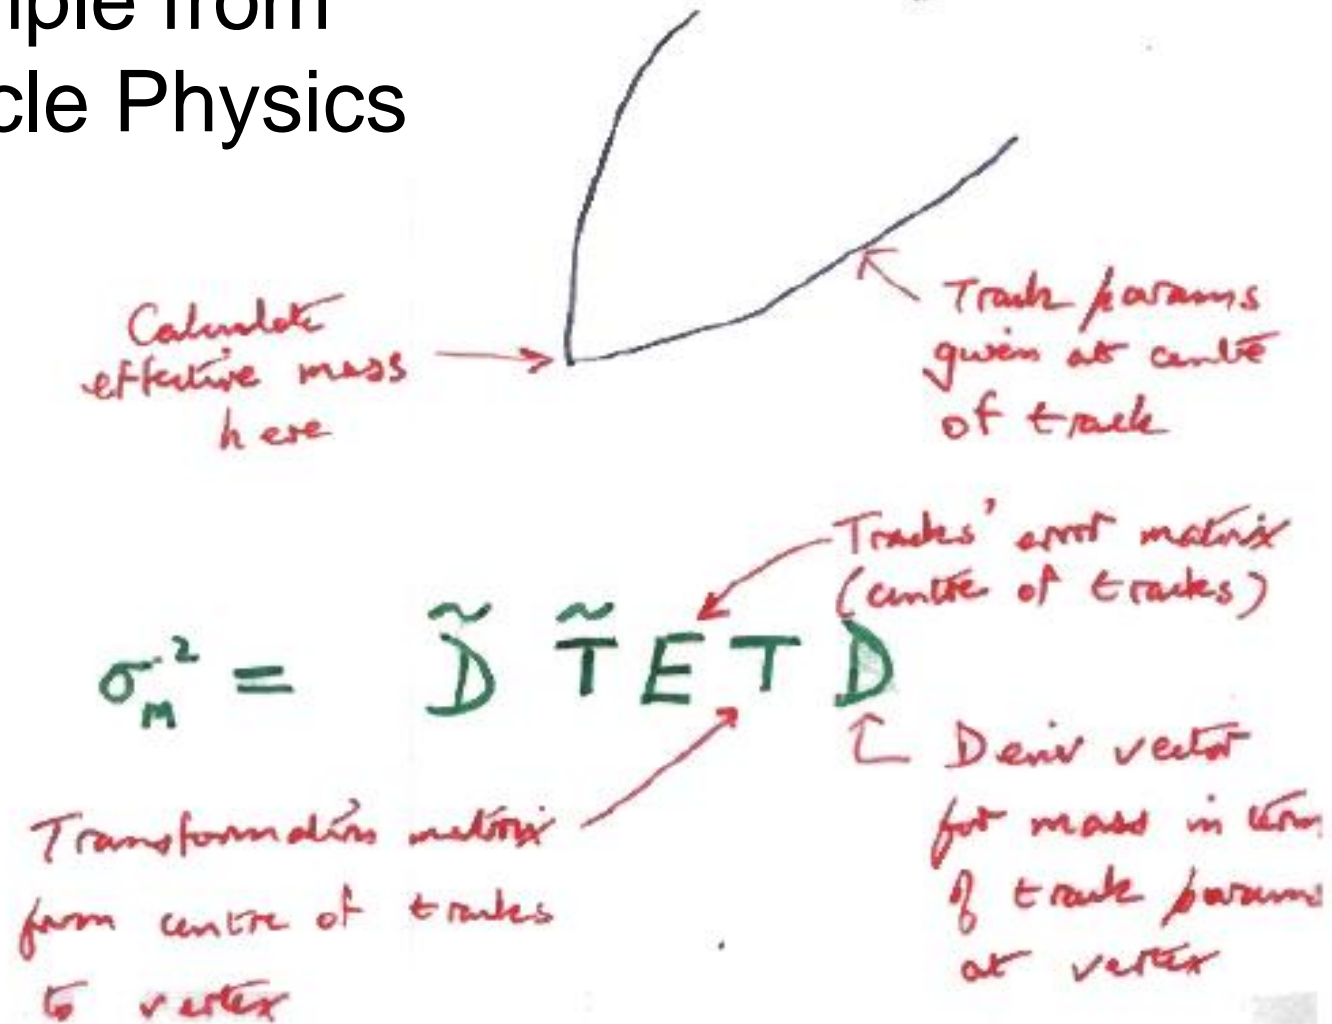 mple from
cle Physics
Calculate
effective mass
here
Track params
given at centre
of track
Tracks' error matrix
(centre of tracks)
σ_M² = D̃ T̃ E T D
Transformation matrix
from centre of tracks
to vertex
Deriv vector
for mass in term
of track params
at vertex